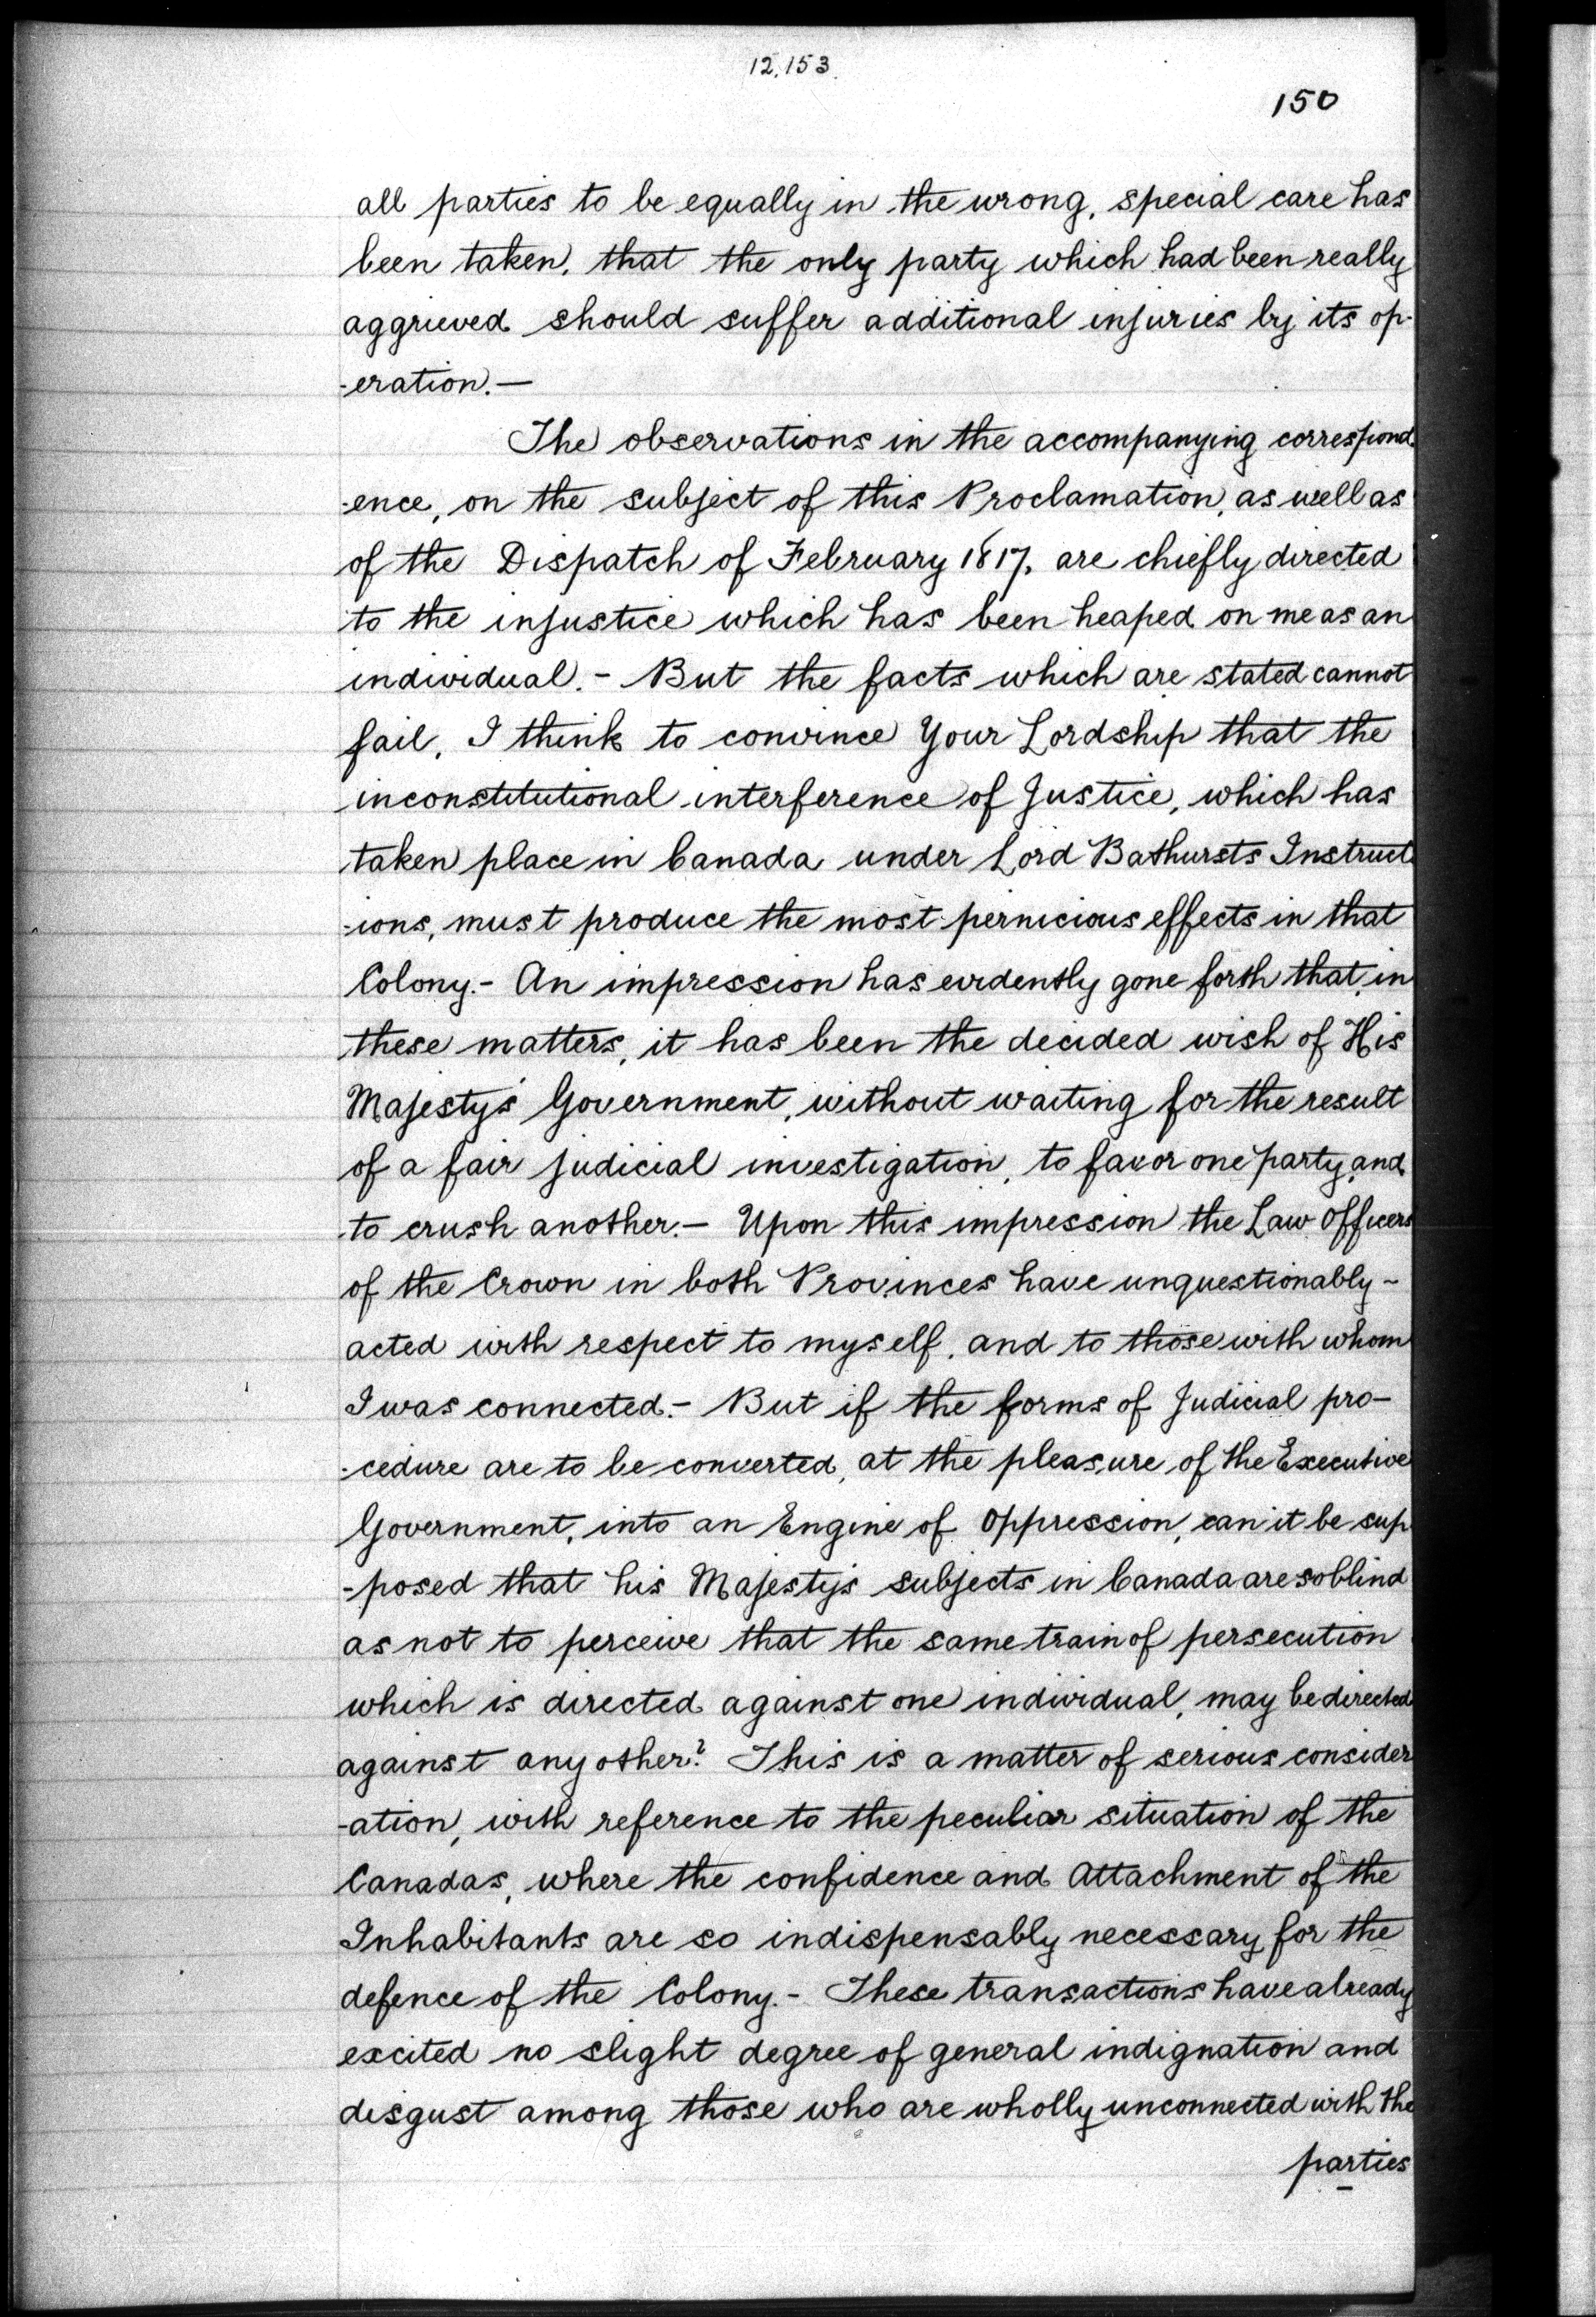 12,153
150
all parties to be equally in the wrong, special care has
been taken, that the only party which had been really
aggrieved should suffer additional injuries by its op-
-eration.—
The observations in the accompanying correspond
-ence, on the subject of this Proclamation, as well as
of the Dispatch of February 1817, are chiefly directed
to the injustice which has been heaped on me as an
individual.- But the facts which are stated cannot
fail, I think to convince Your Lordship that the
inconstitutional interference of Justice, which has
taken place in Canada under Lord Bathursts Instruct
-ions, must produce the most pernicious effects in that
Colony.- An impression has evidently gone forth that, in
these matters, it has been the decided wish of His
Majesty's Government, without waiting for the result
of a fair judicial investigation, to favor one party, and
to crush another.— Upon this impression the Law Officers
of the Crown in both Provinces have unquestionably -
acted with respect to myself, and to those with whom
I was connected.- But if the forms of Judicial pro-
-cedure are to be converted, at the pleasure of the Executive
Government, into an Engine of Oppression, can it be sup
-posed that his Majesty's subjects in Canada are so blind
as not to perceive that the same train of persecution
which is directed against one individual, may be directed
against any other? This is a matter of serious consider
-ation, with reference to the peculiar situation of the
Canadas, where the confidence and Attachment of the
Inhabitants are so indispensably necessary for the
defence of the Colony.- These transactions have already
excited no slight degree of general indignation and
disgust among those who are wholly unconnected with the
parties